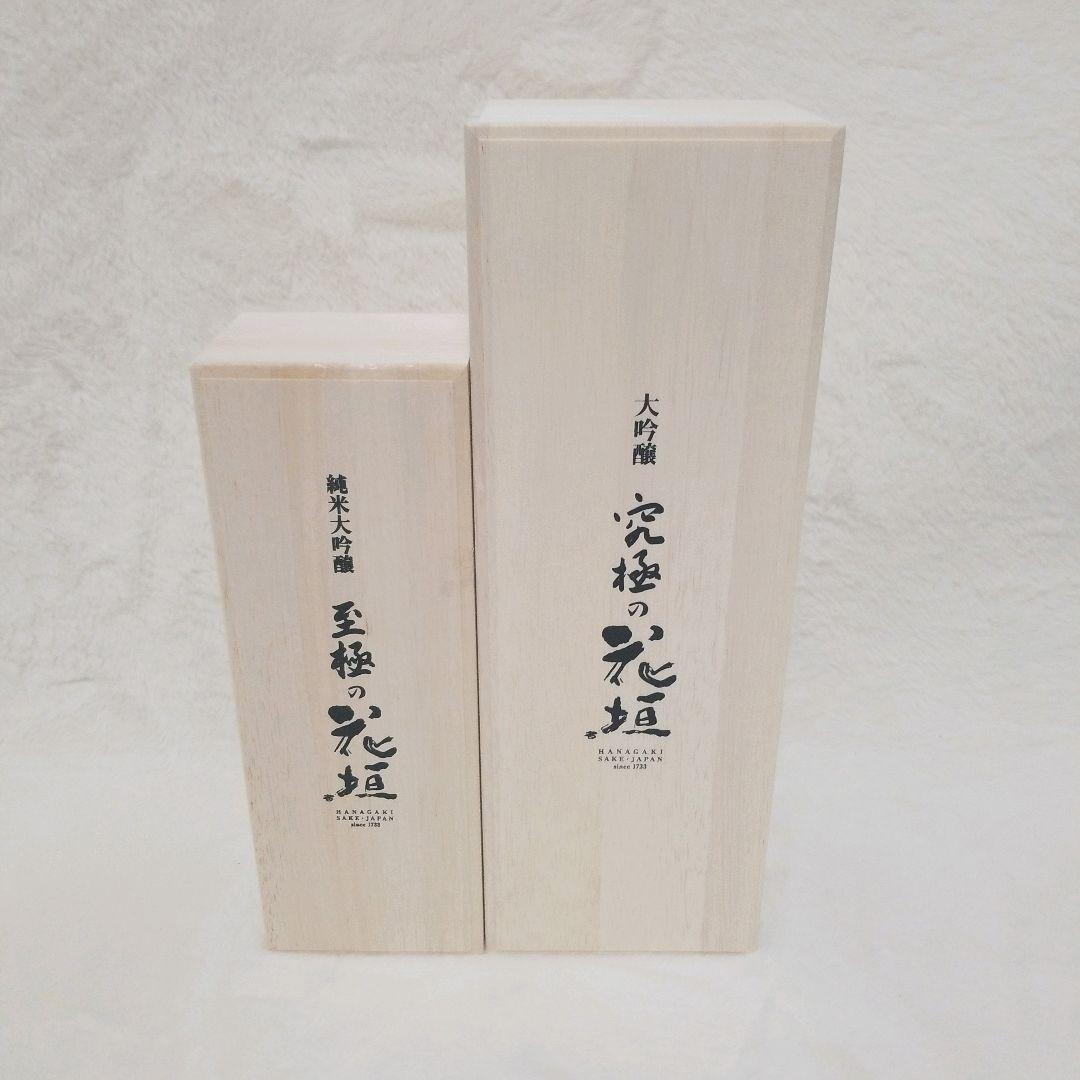 純米大吟醸
至極の花垣
HANAGAKI
SAKE・JAPAN
since 1733
大吟醸
究極の花垣
HANAGAKI
SAKE・JAPAN
since 1733